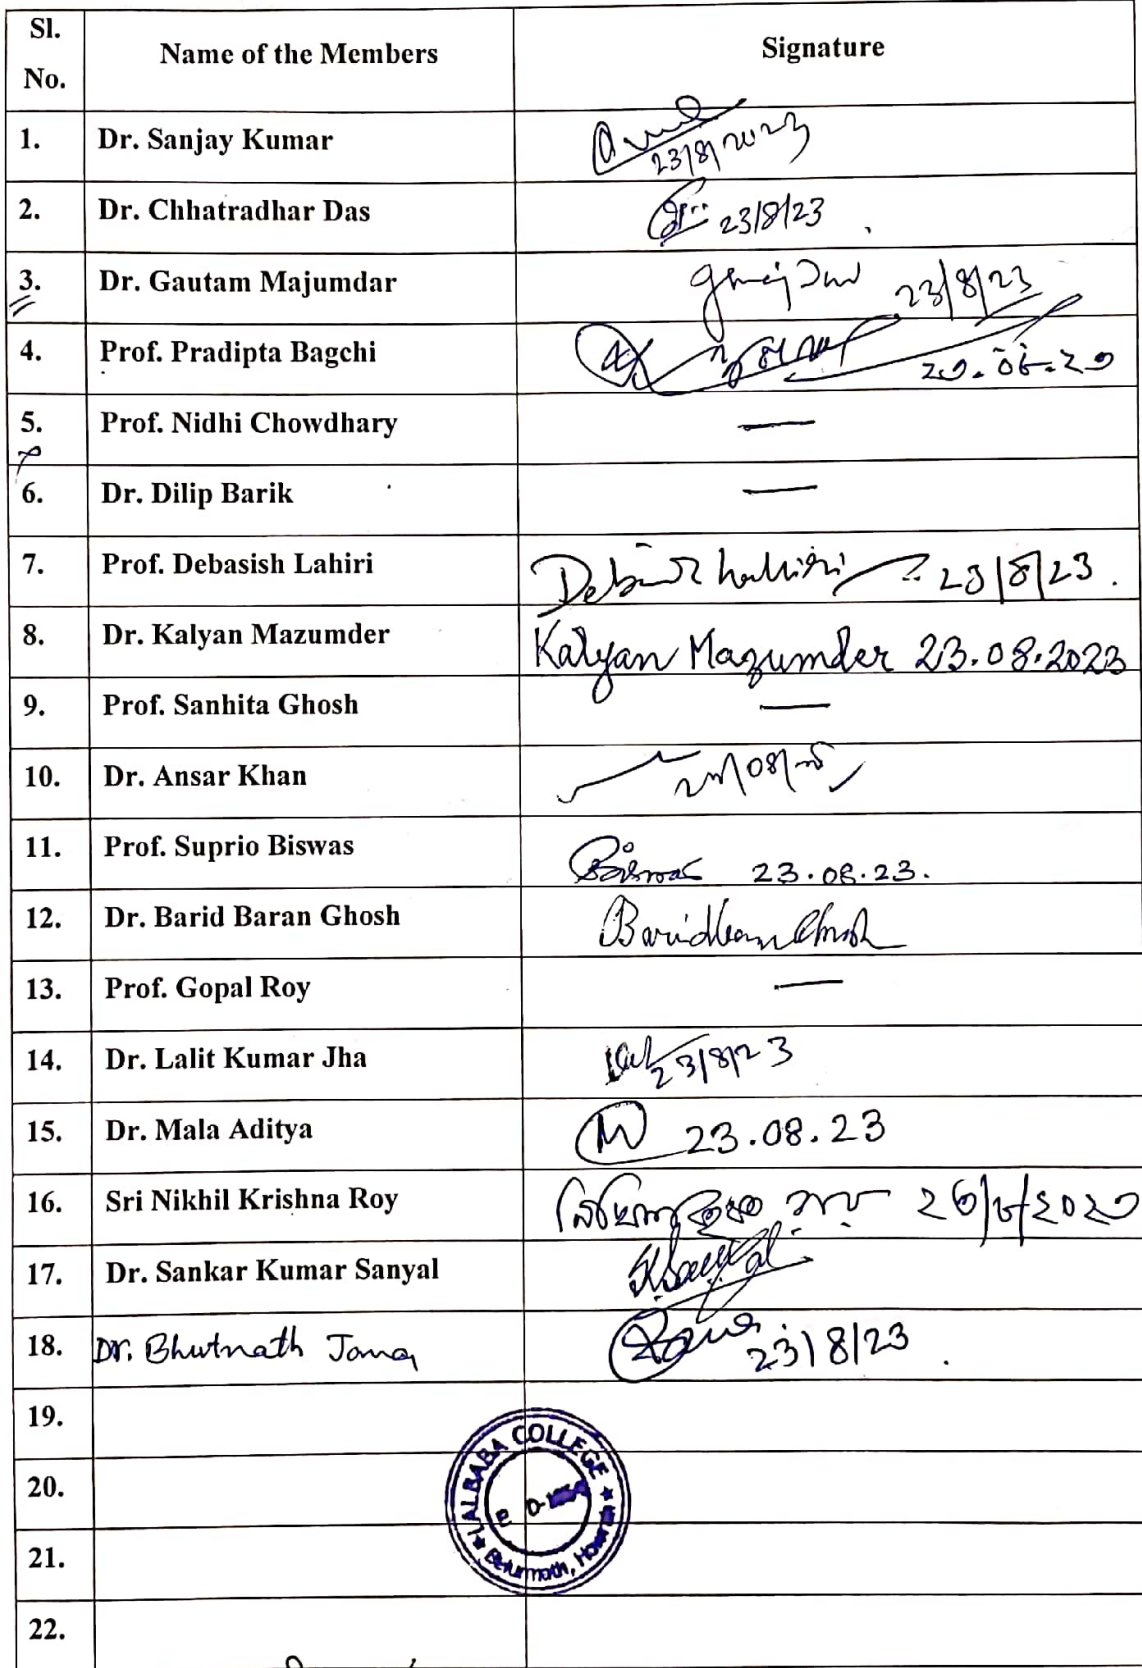 Sl. No. Name of the Members Signature
1. Dr. Sanjay Kumar 23/8/2023
2. Dr. Chhatradhar Das 23/8/23
3. Dr. Gautam Majumdar 23/8/23
4. Prof. Pradipta Bagchi ২৩.০৮.২৩
5. Prof. Nidhi Chowdhary —
6. Dr. Dilip Barik —
7. Prof. Debasish Lahiri Lahiri 23/8/23.
8. Dr. Kalyan Mazumder Kalyan Mazumder 23.08.2023
9. Prof. Sanhita Ghosh —
10. Dr. Ansar Khan
11. Prof. Suprio Biswas Biswas 23.08.23.
12. Dr. Barid Baran Ghosh Barid Baran Ghosh
13. Prof. Gopal Roy —
14. Dr. Lalit Kumar Jha 23/8/23
15. Dr. Mala Aditya 23.08.23
16. Sri Nikhil Krishna Roy নিখিল কৃষ্ণ রায় ২৩/৮/২০২৩
17. Dr. Sankar Kumar Sanyal SKSanyal
18. Dr. Bhutnath Jana Jana 23/8/23
19.
20.
21.
22.
LALBABA COLLEGE
Belurmath, Howrah